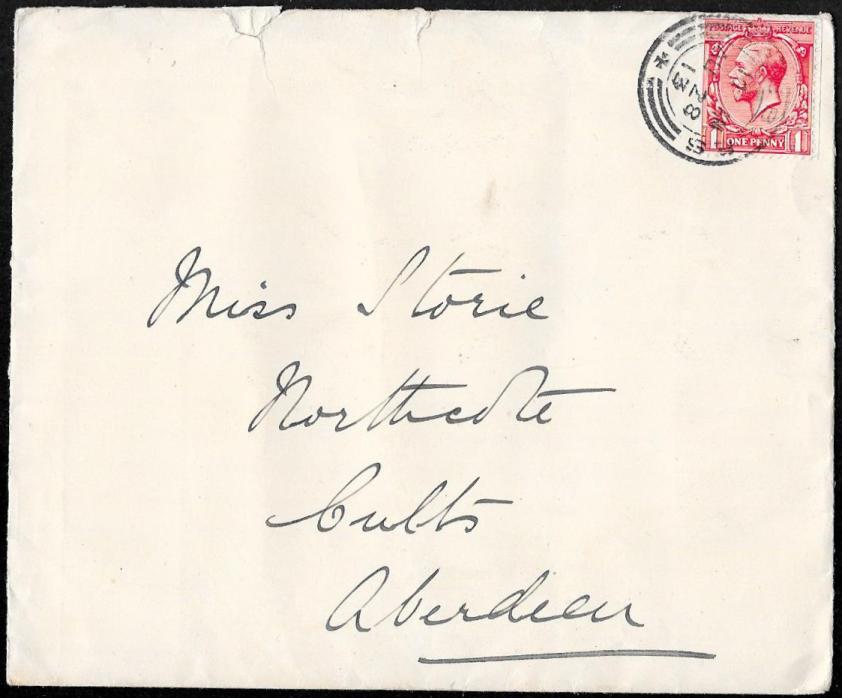 POSTAGE REVENUE
1 ONE PENNY 1
Miss Storie
Northcote
Cults
Aberdeen